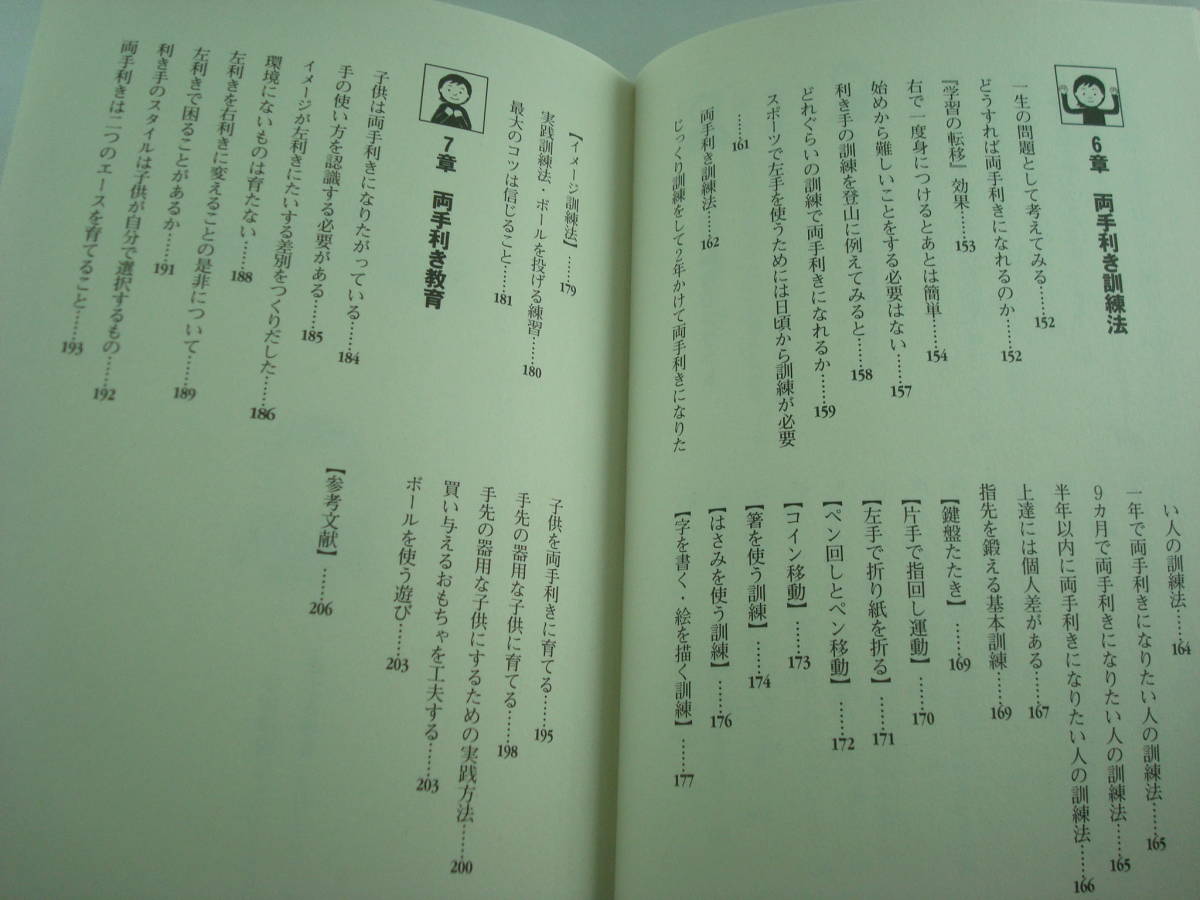 6章 両手利き訓練法
一生の問題として考えてみる……152
どうすれば両手利きになれるのか……152
『学習の転移』効果……153
右で一度身につけるとあとは簡単……154
始めから難しいことをする必要はない……157
利き手の訓練を登山に例えてみると……158
どれぐらいの訓練で両手利きになれるか……159
スポーツで左手を使うためには日頃から訓練が必要
……161
両手利き訓練法……162
じっくり訓練をして2年かけて両手利きになりた
い人の訓練法……164
一年で両手利きになりたい人の訓練法……165
9ヵ月で両手利きになりたい人の訓練法……165
半年以内に両手利きになりたい人の訓練法……166
上達には個人差がある……167
指先を鍛える基本訓練……169
【鍵盤たたき】……169
【片手で指回し運動】……170
【左手で折り紙を折る】……171
【ペン回しとペン移動】……172
【コイン移動】……173
【箸を使う訓練】……174
【はさみを使う訓練】……176
【字を書く・絵を描く訓練】……177
【イメージ訓練法】……179
実践訓練法・ボールを投げる練習……180
最大のコツは信じること……181
7章 両手利き教育
子供は両手利きになりたがっている……184
手の使い方を認識する必要がある……185
イメージが左利きにたいする差別をつくりだした……186
環境にないものは育たない……188
左利きを右利きに変えることの是非について……189
左利きで困ることがあるか……191
利き手のスタイルは子供が自分で選択するもの……192
両手利きは二つのエースを育てること……193
子供を両手利きに育てる……195
手先の器用な子供に育てる……198
手先の器用な子供にするための実践方法……200
買い与えるおもちゃを工夫する……203
ボールを使う遊び……203
【参考文献】……206